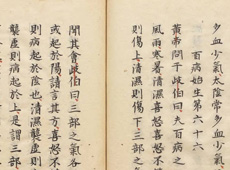 多血少氣太陰常多血少
百病始生第六十六
黃帝問于岐伯曰夫百病之
風雨寒暑清濕喜怒喜怒不
則傷上清濕則傷下三部
聞其會岐伯曰三部之氣各
或起於陽請言其方喜怒不
則病起於陰也清濕襲虛則
襲虛則病起於上是謂三部